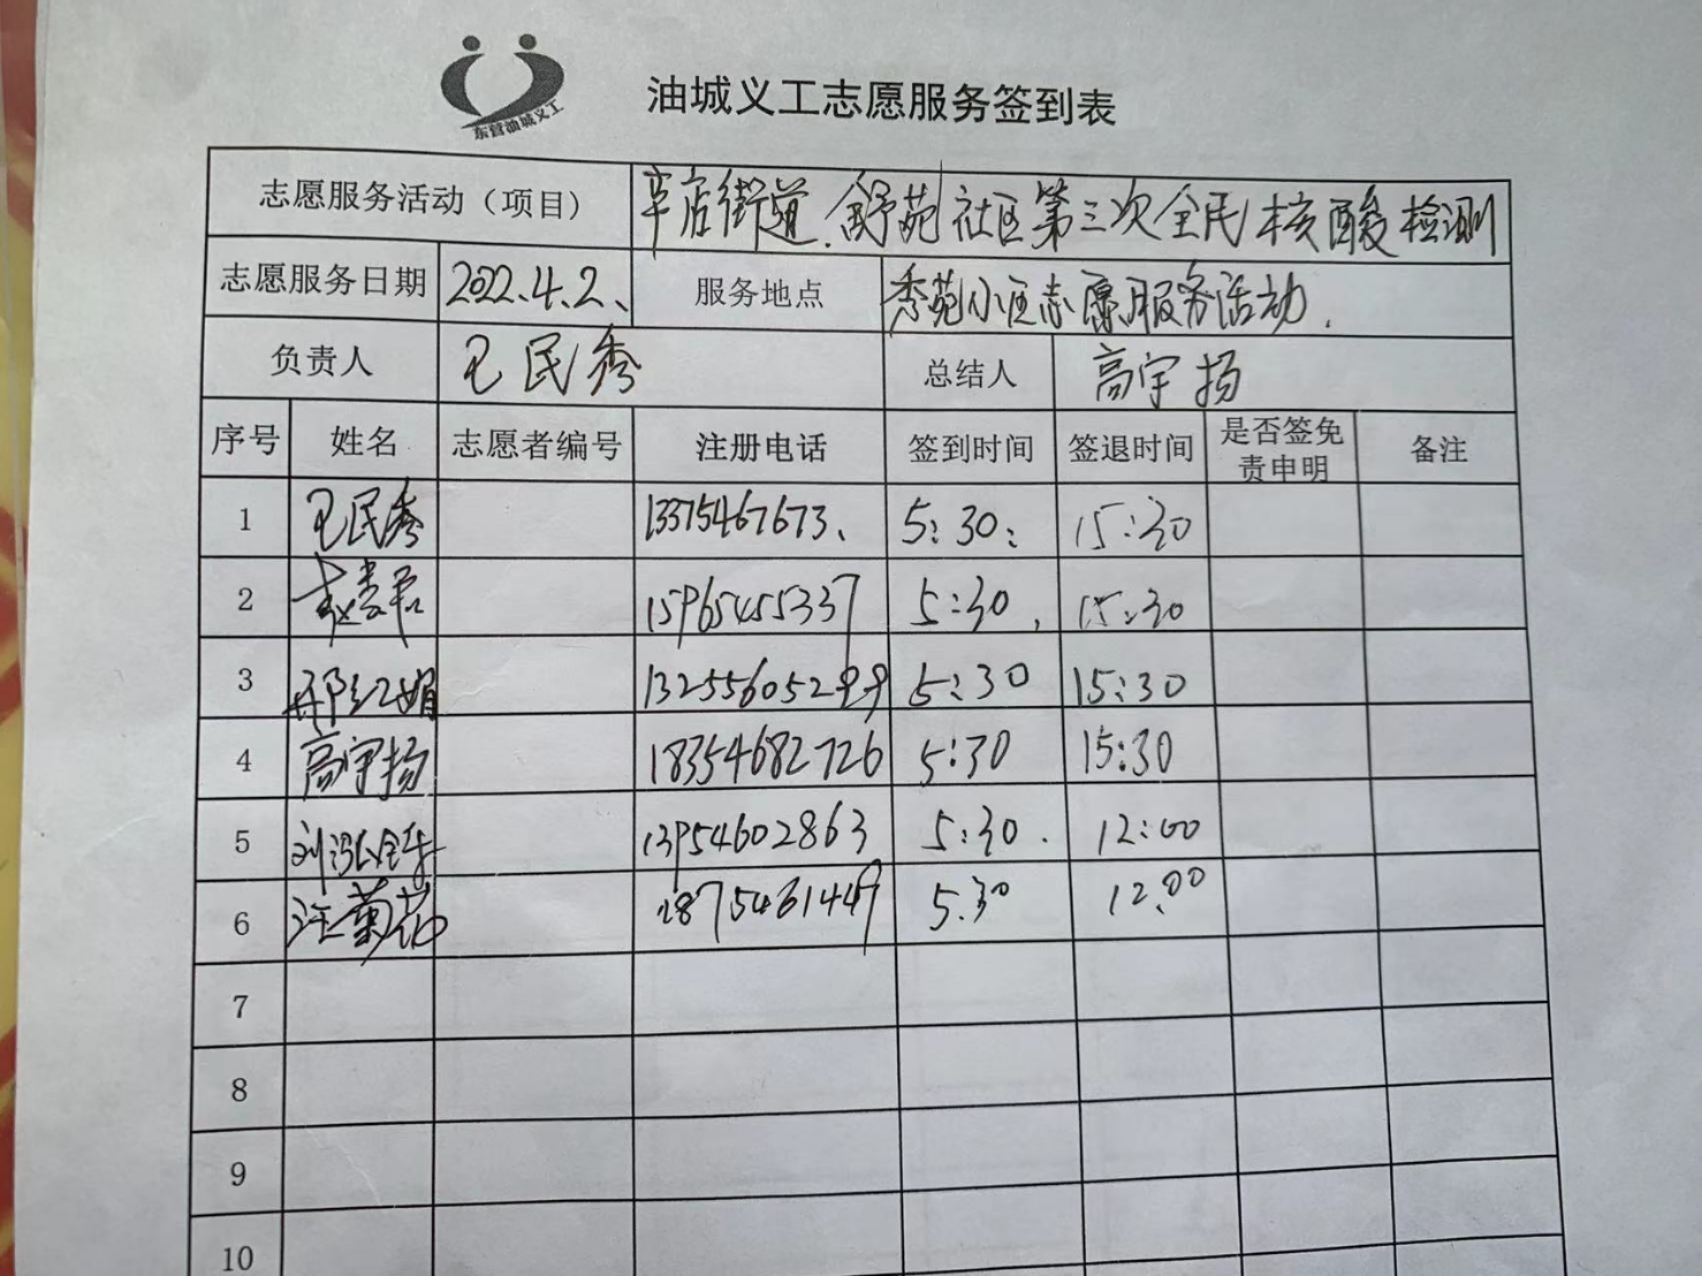 东营油城义工
油城义工志愿服务签到表
志愿服务活动（项目） 辛店街道.舒苑社区第三次全民核酸检测
志愿服务日期 2022.4.2、 服务地点 秀苑小区志愿服务活动.
负责人 民秀 总结人 高宇扬
序号 姓名 志愿者编号 注册电话 签到时间 签退时间 是否签免责申明 备注
1 民秀 13375467673、 5:30: 15:30
2 15965455337 5:30 15:30
3 红娟 13255605299 5:30 15:30
4 高宇扬 18354682726 5:30 15:30
5 刘泓 13954602863 5:30. 12:00
6 汪菊花 1875461449 5.30 12.00
7
8
9
10